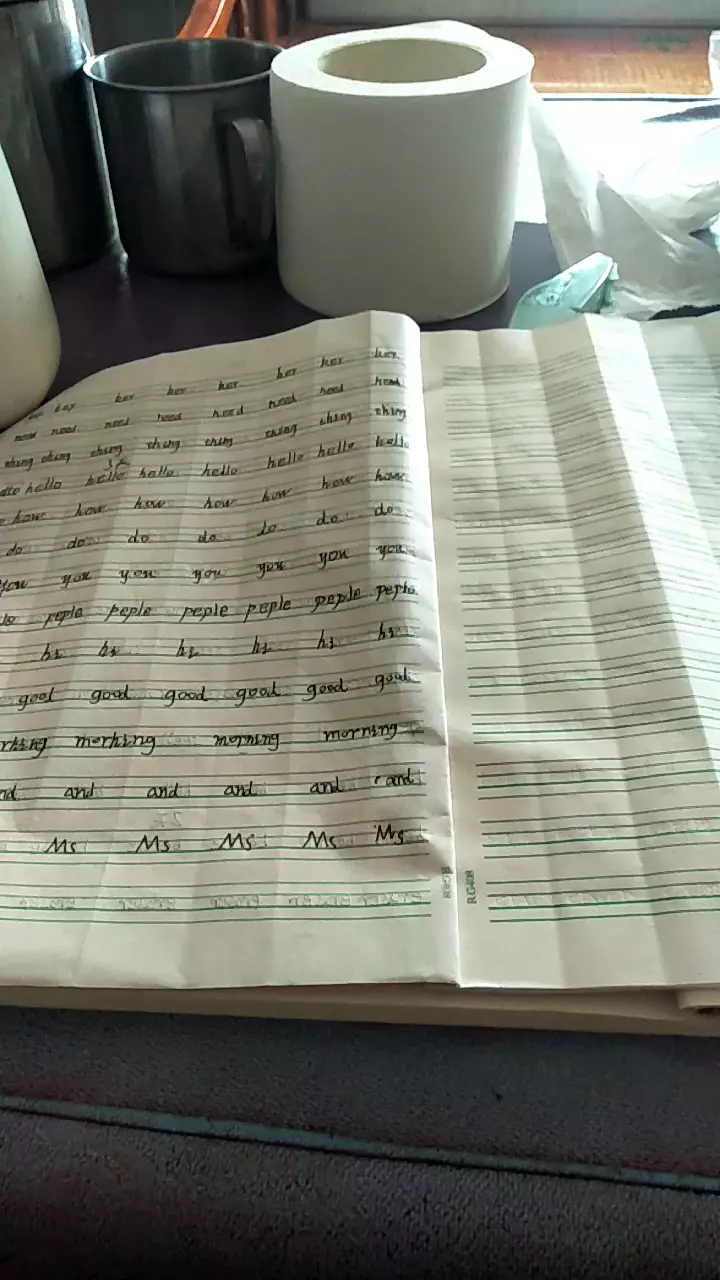 her her her her her her her
need need need need need need need need
thing thing thing thing thing thing thing thing
hello hello hello hello hello hello hello
how how how how how how how
do do do do do do do
you you you you you you you
peple peple peple peple peple peple
hi hi hi hi hi hi
good good good good good good
merhing morning morning
and and and and and
Ms Ms Ms Ms Ms
RG408
RG408